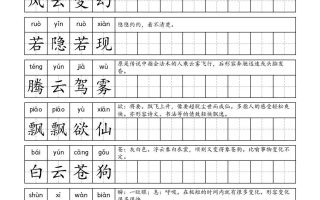 风云变幻
ruò yǐn ruò xiàn
若隐若现
隐隐约约，看不清楚。
téng yún jià wù
腾云驾雾
原是传说中指会法术的人乘云雾飞行，后形容奔驰迅速或头脑发昏。
piāo piāo yù xiān
飘飘欲仙
欲：将要。飘飞上升，像要超脱尘世而成仙。多指人的感受轻松爽快。亦形容诗文、书法等的情致轻脱飘逸。
bái yún cāng gǒu
白云苍狗
苍：灰白色。浮云像白衣裳，顷刻又变得像苍狗。比喻事物变化不定。
shùn xī wàn biàn
瞬：一眨眼；息：呼吸。在极短的时间内就有很多变化。形容变化很多很快。